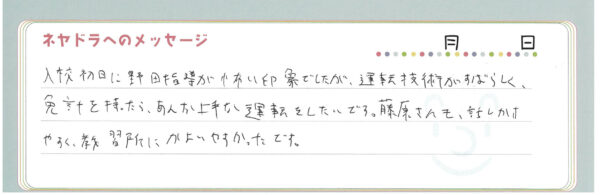 ネヤドラへのメッセージ
月 日
入校初日に野田指導がやわい印象でしたが、運転技術がすばらしく、
免許を採ったら、あんな上手な運転をしたいです。藤原さんも、話しかけ
やすく、教習所にかよいやすかったです。